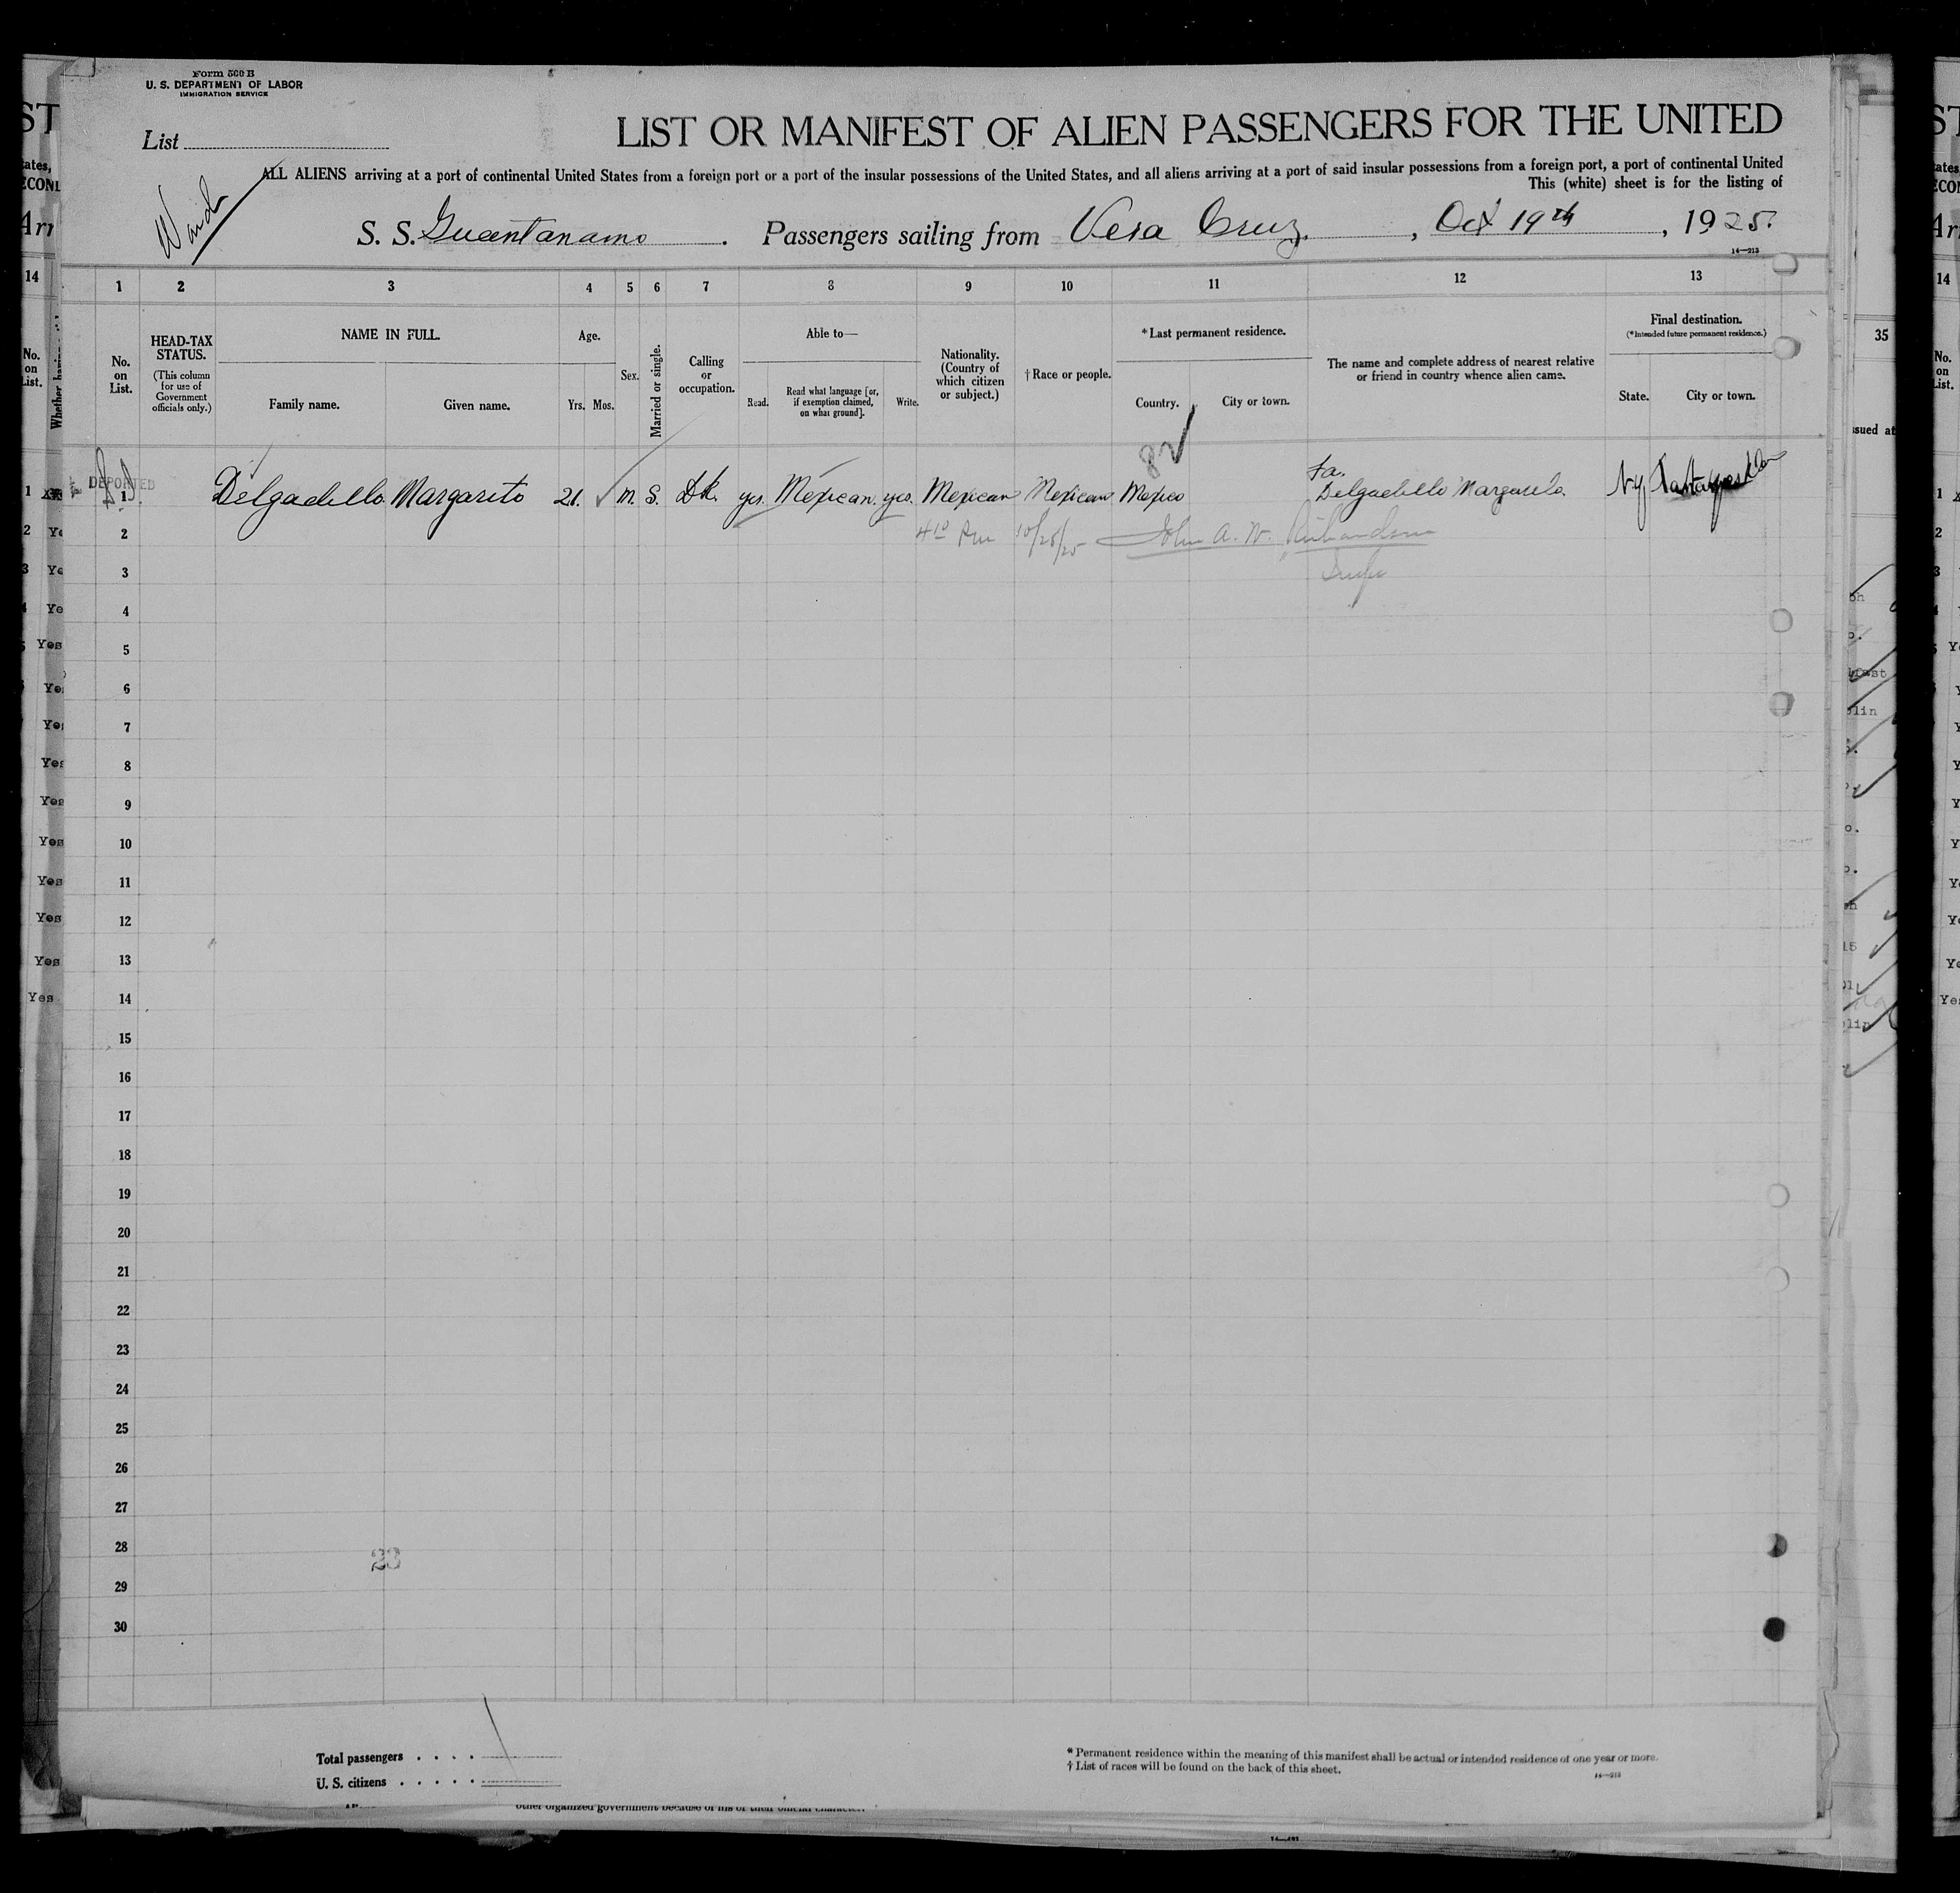 Form 500 B
U. S. DEPARTMENT OF LABOR
IMMIGRATION SERVICE
List
LIST OR MANIFEST OF ALIEN PASSENGERS FOR THE UNITED
ALL ALIENS arriving at a port of continental United States from a foreign port or a port of the insular possessions of the United States, and all aliens arriving at a port of said insular possessions from a foreign port, a port of continental United
This (white) sheet is for the listing of
S. S. Guantanamo. Passengers sailing from Vera Cruz, Oct 19th, 1925.
14—213
1 2 3 4 5 6 7 8 9 10 11 12 13
No. on List.
HEAD-TAX STATUS.
(This column for use of Government officials only.)
NAME IN FULL.
Family name. Given name.
Age.
Yrs. Mos.
Sex.
Married or single.
Calling or occupation.
Able to—
Read. Read what language [or, if exemption claimed, on what ground]. Write.
Nationality. (Country of which citizen or subject.)
†Race or people.
*Last permanent residence.
Country. City or town.
The name and complete address of nearest relative or friend in country whence alien came.
Final destination.
(*Intended future permanent residence.)
State. City or town.
82
DEPORTED
fa.
1 Delgadillo Margarito 21. m. S. yes. Mexican. yes. Mexican Mexican Mexico Delgadillo Margarito. Ny
2 10/28/25 John A. W. Richardson
3
4
5
6
7
8
9
10
11
12
13
14
15
16
17
18
19
20
21
22
23
24
25
26
27
28
23
29
30
Total passengers . . . .
U. S. citizens . . . . .
* Permanent residence within the meaning of this manifest shall be actual or intended residence of one year or more.
† List of races will be found on the back of this sheet.
14—213
other organized government because of his or their official character.